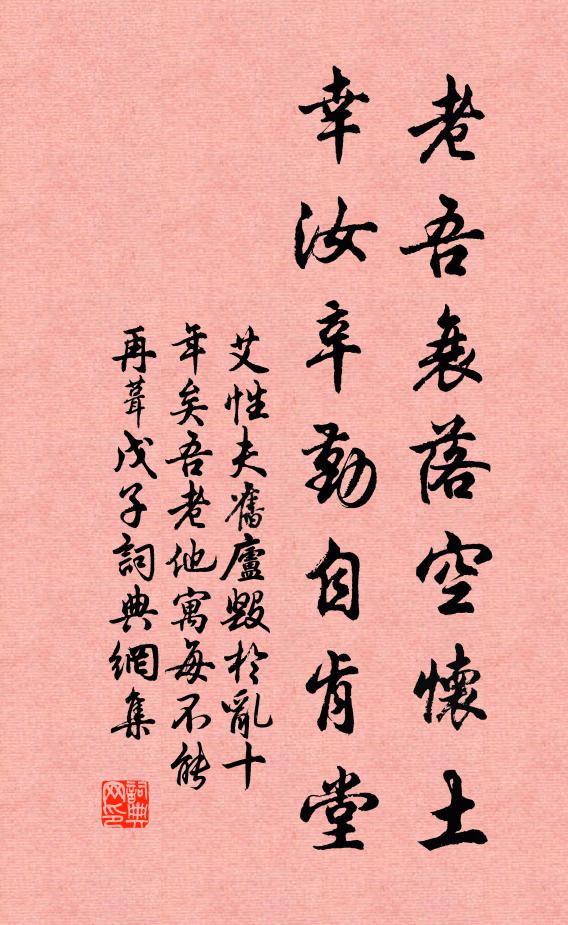 老吾衰落空懷土
幸汝辛勤自肯堂
艾性夫舊廬毀於亂十
年矣吾老他寓每不能
再葺戊子詞典網集
詞典
网印